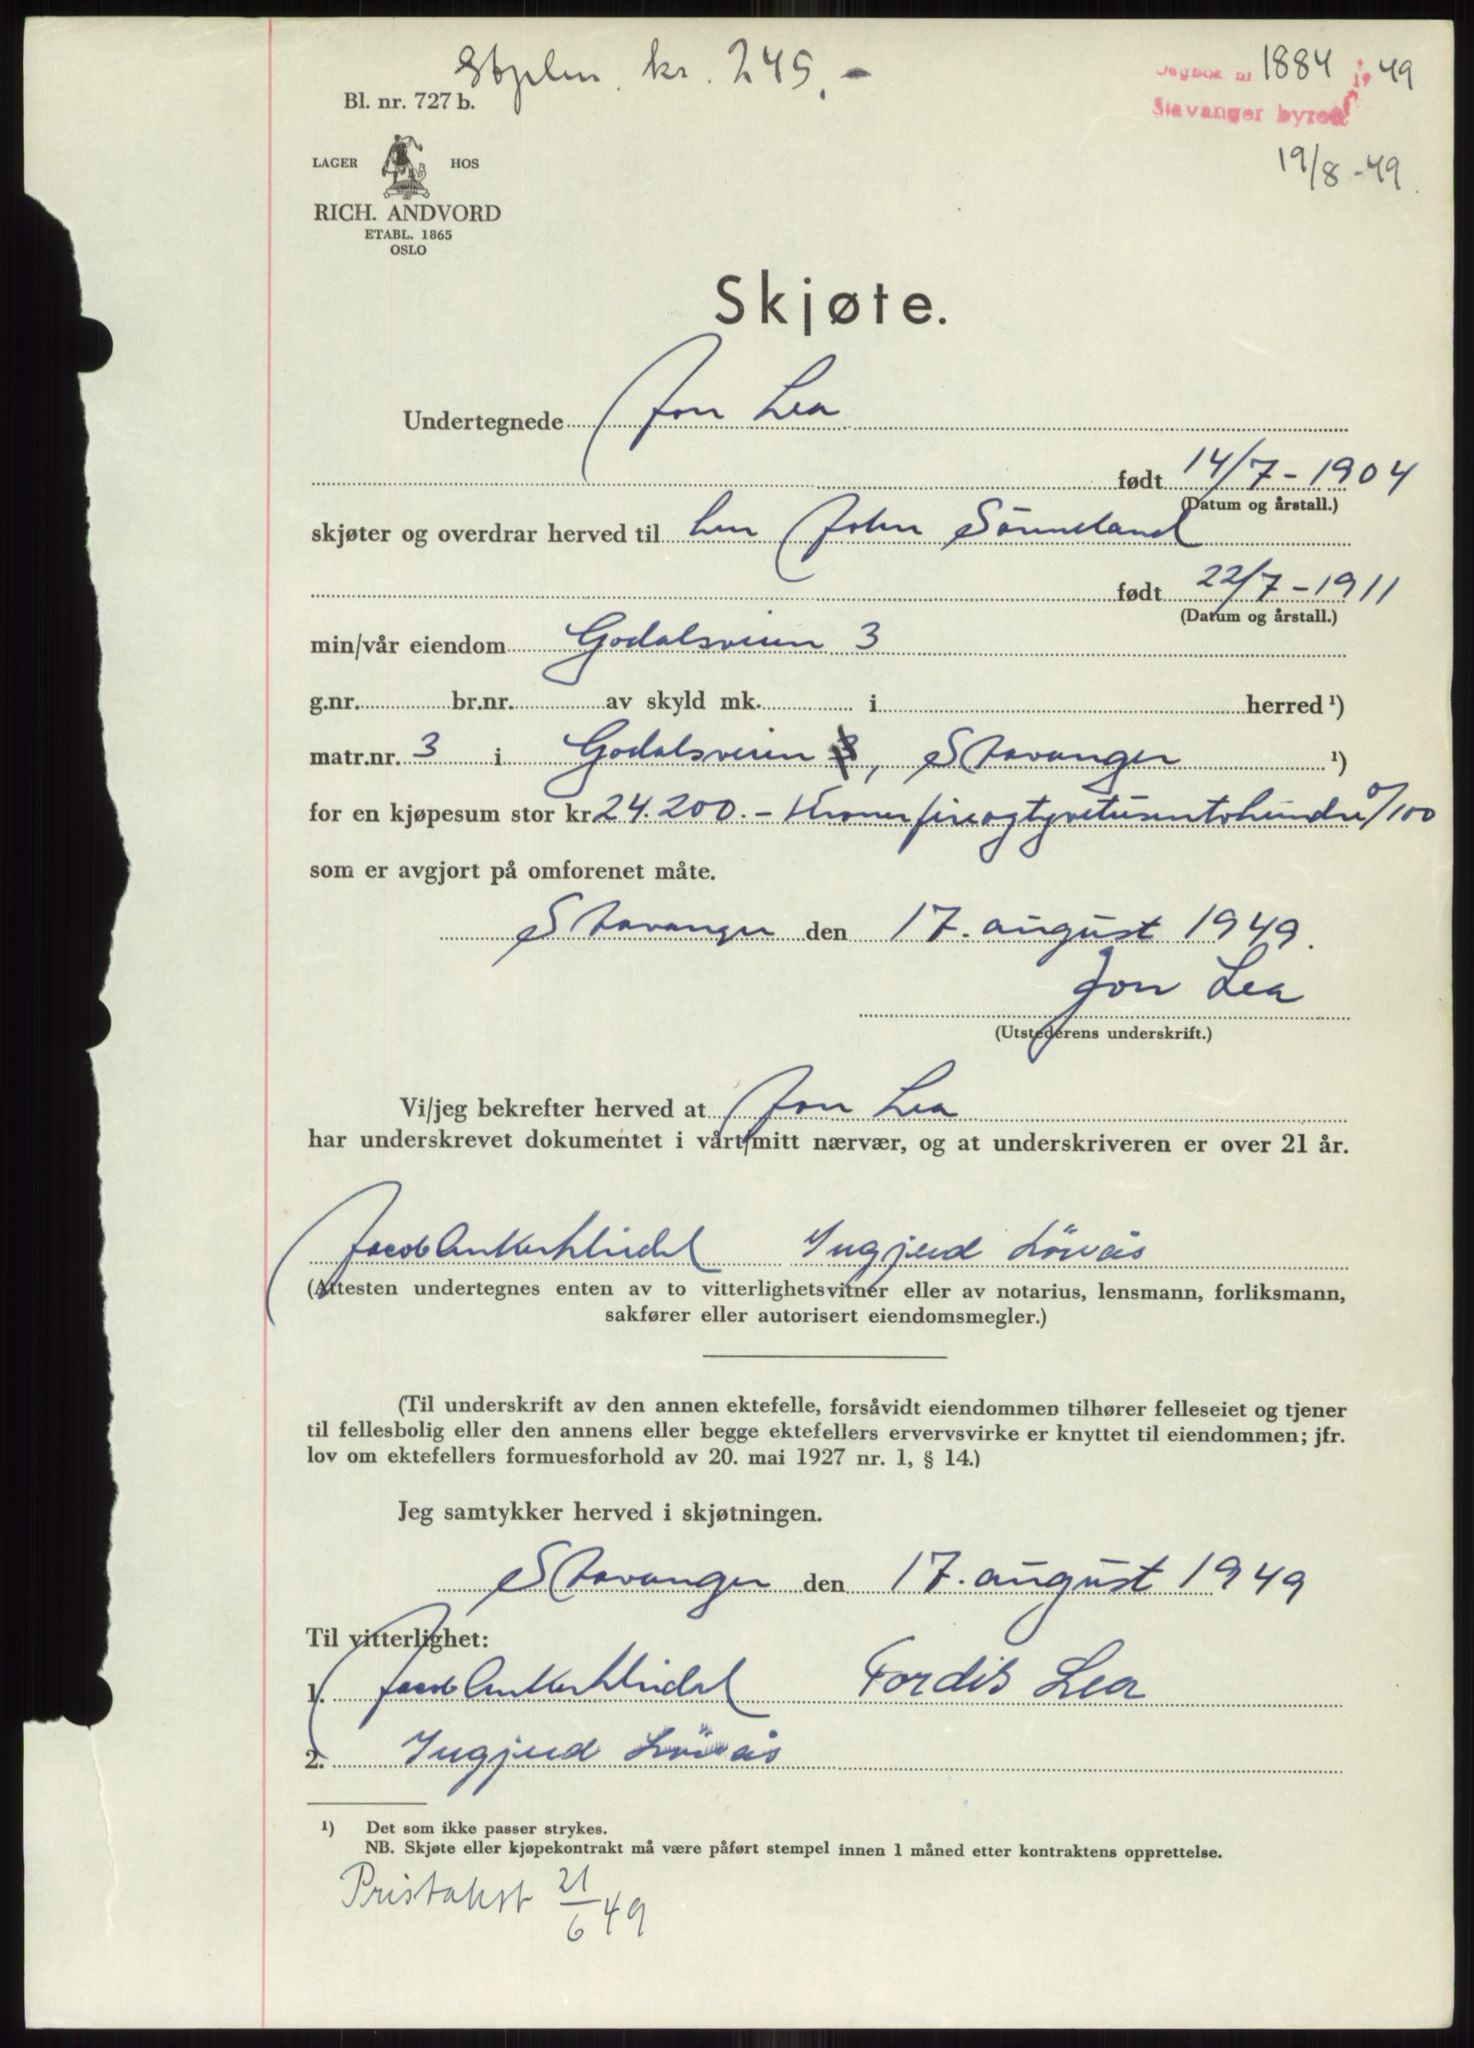 Stplm. kr. 245.-
Dagbok nr. 1884 19 49
Stavanger byrett
19/8-49.
Bl. nr. 727 b.
LAGER HOS
RICH. ANDVORD
ETABL. 1865
OSLO
Skjøte.
Undertegnede Jon Lea
født 14/7-1904
(Datum og årstall.)
skjøter og overdrar herved til herr John Sönneland
født 22/7-1911
(Datum og årstall.)
min/vår eiendom Godalsveien 3
g.nr. br.nr. av skyld mk. i herred ¹)
matr.nr. 3 i Godalsveien 3, Stavanger ¹)
for en kjøpesum stor kr 24.200.- Kroner fireogtyvetusentohundre 0/100
som er avgjort på omforenet måte.
Stavanger den 17. august 1949.
Jon Lea
(Utstederens underskrift.)
Vi/jeg bekrefter herved at Jon Lea
har underskrevet dokumentet i vårt/mitt nærvær, og at underskriveren er over 21 år.
Jacob Anker Ingjerd Lövås
(Attesten undertegnes enten av to vitterlighetsvitner eller av notarius, lensmann, forliksmann,
sakfører eller autorisert eiendomsmegler.)
(Til underskrift av den annen ektefelle, forsåvidt eiendommen tilhører felleseiet og tjener
til fellesbolig eller den annens eller begge ektefellers ervervsvirke er knyttet til eiendommen; jfr.
lov om ektefellers formuesforhold av 20. mai 1927 nr. 1, § 14.)
Jeg samtykker herved i skjøtningen.
Stavanger den 17. august 1949
Til vitterlighet:
1. Jacob Anker Tordis Lea
2. Ingjerd Lövås
¹) Det som ikke passer strykes.
NB. Skjøte eller kjøpekontrakt må være påført stempel innen 1 måned etter kontraktens opprettelse.
Pristakst 21/6 49